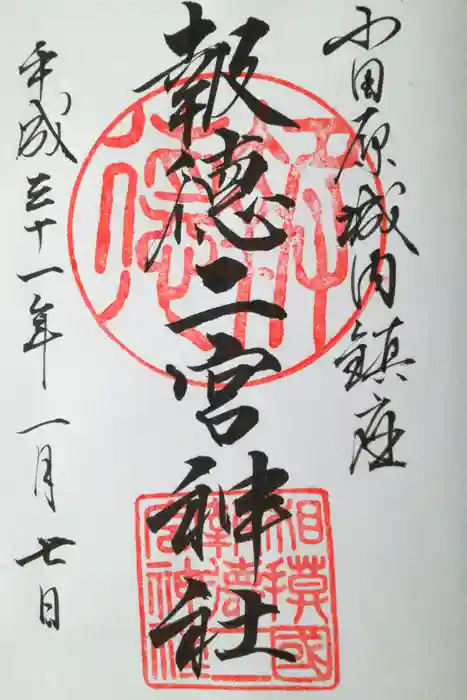 小田原城内鎮座
報徳二宮神社
平成三十一年一月七日
相模國
報徳二
宮神社